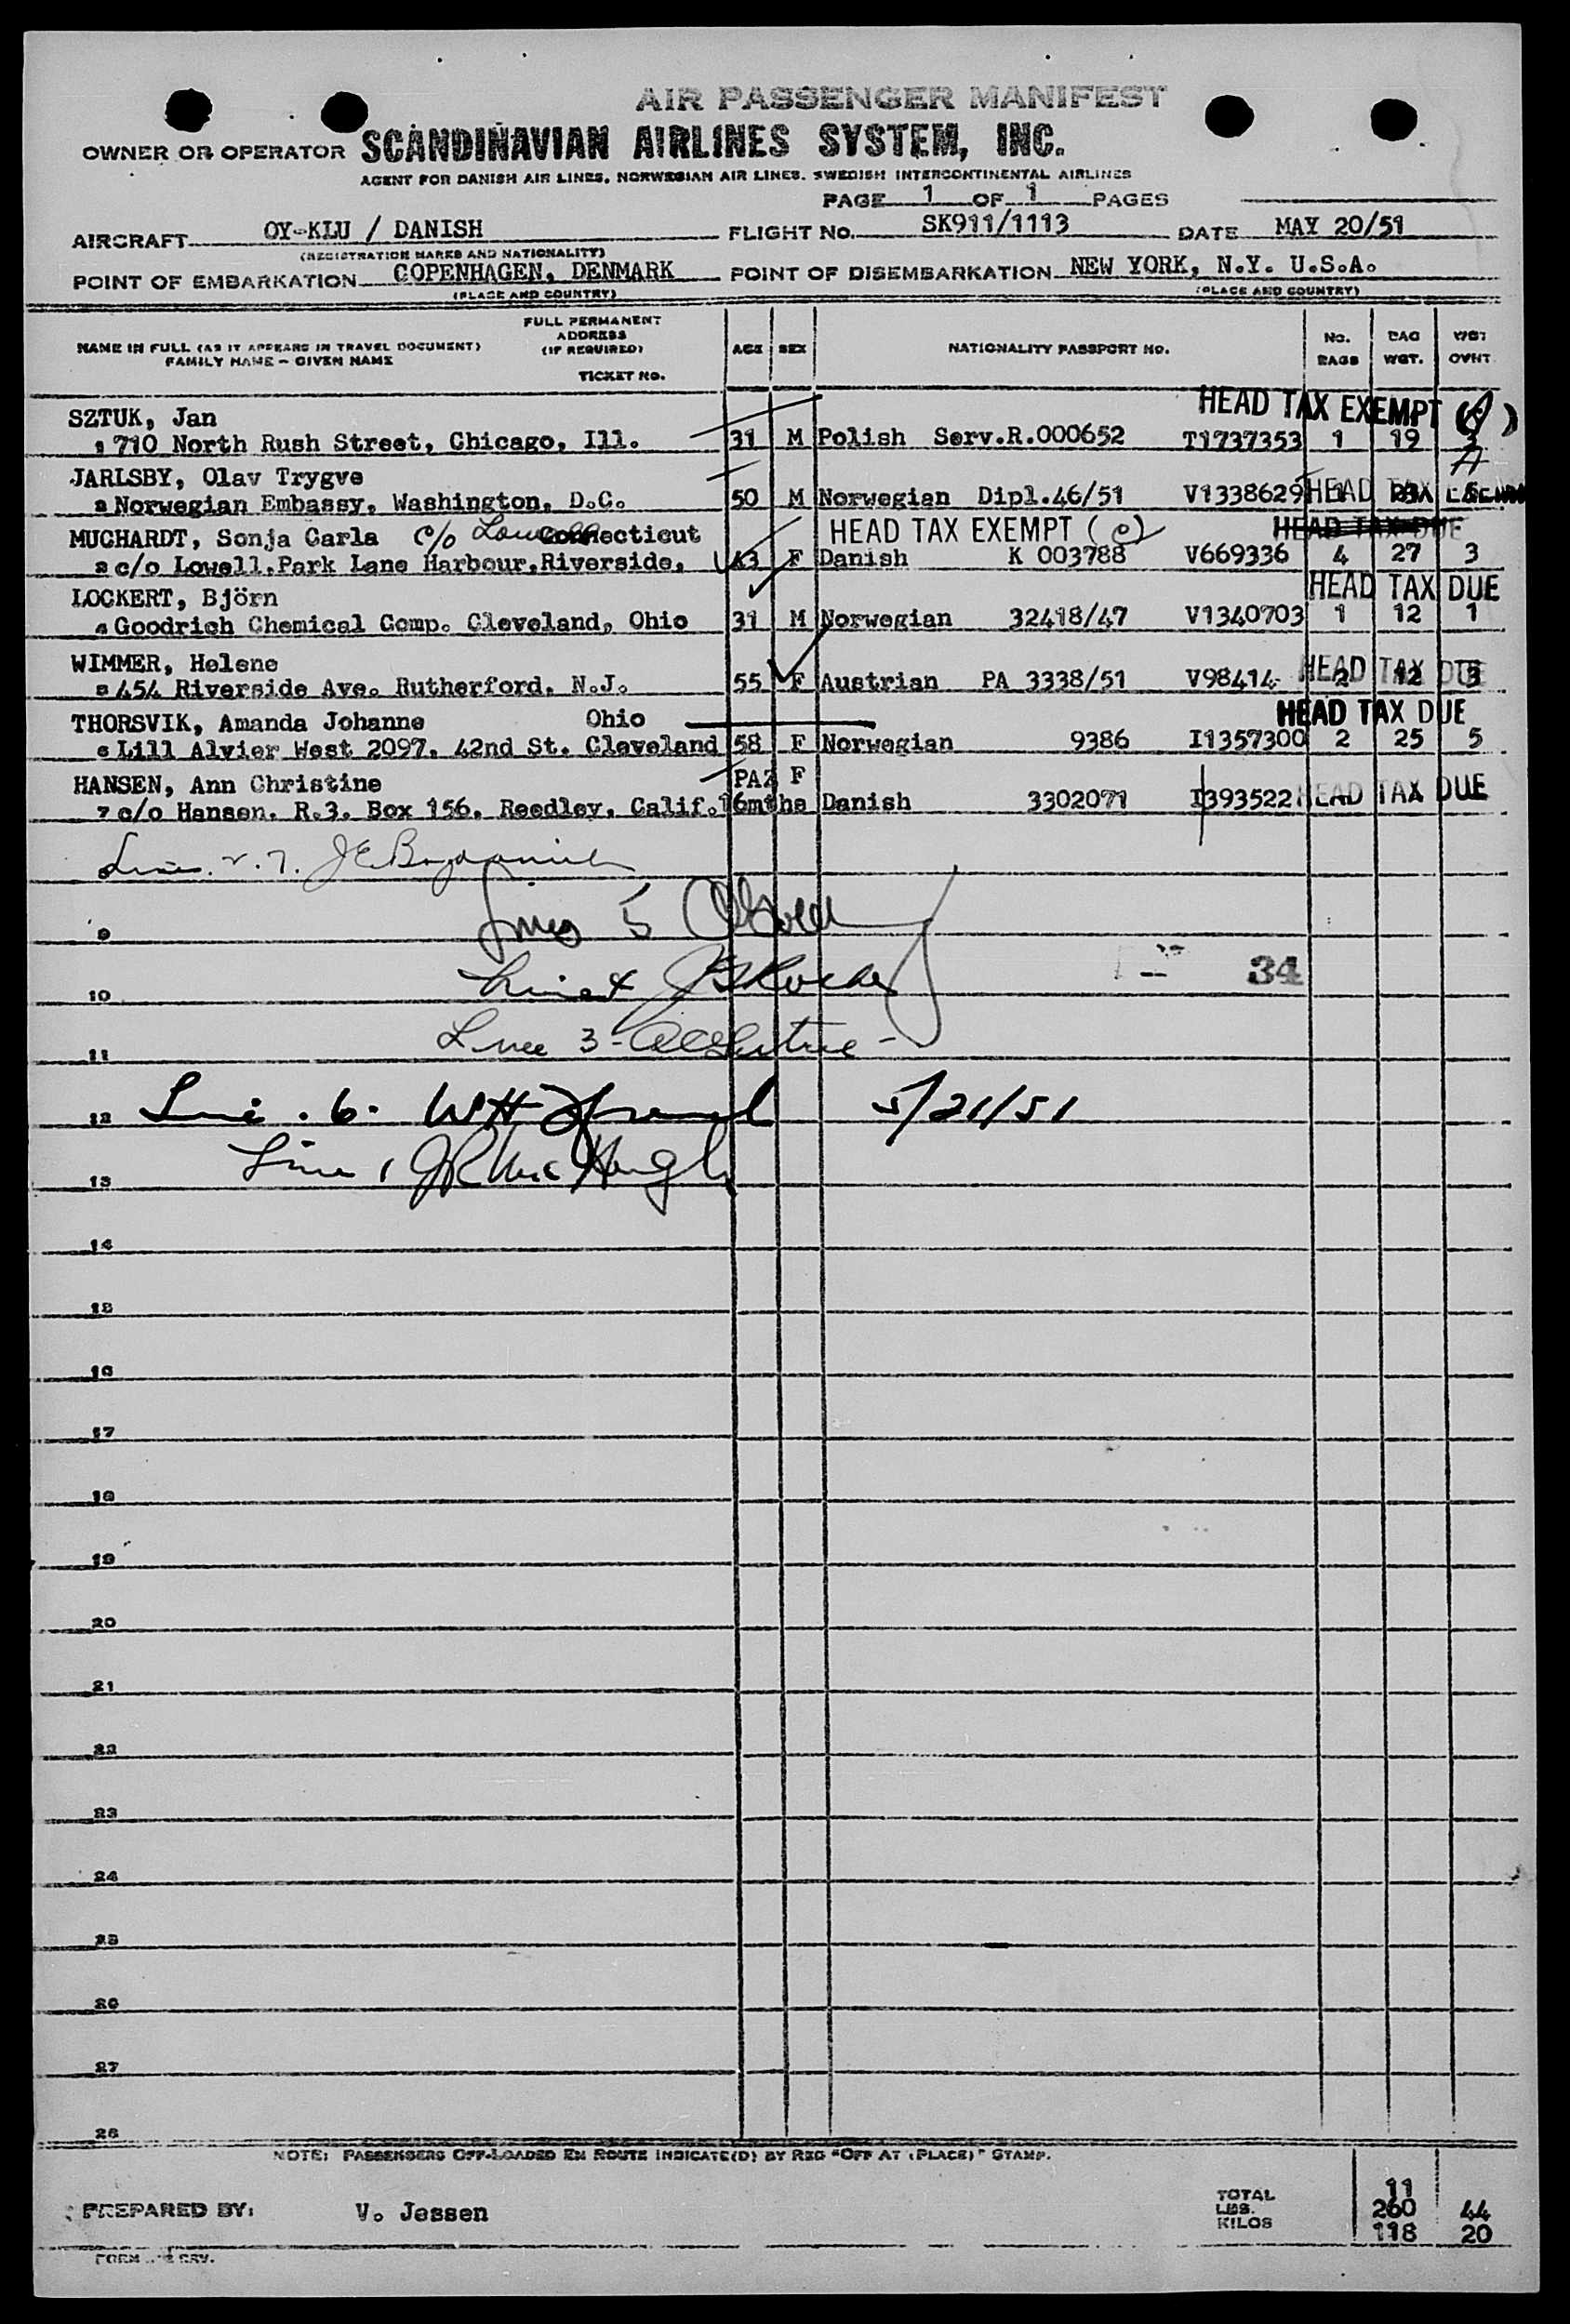 AIR PASSENGER MANIFEST
OWNER OR OPERATOR SCANDINAVIAN AIRLINES SYSTEM, INC.
AGENT FOR DANISH AIR LINES, NORWEGIAN AIR LINES, SWEDISH INTERCONTINENTAL AIRLINES
PAGE 1 OF 1 PAGES
AIRCRAFT OY-KLU / DANISH FLIGHT NO. SK911/1113 DATE MAY 20/51
(REGISTRATION MARKS AND NATIONALITY)
POINT OF EMBARKATION COPENHAGEN, DENMARK POINT OF DISEMBARKATION NEW YORK, N.Y. U.S.A.
(PLACE AND COUNTRY) (PLACE AND COUNTRY)
NAME IN FULL (AS IT APPEARS IN TRAVEL DOCUMENT) FAMILY NAME - GIVEN NAME FULL PERMANENT ADDRESS (IF REQUIRED) TICKET NO. AGE SEX NATIONALITY PASSPORT NO. NO. BAGS BAG WGT. WGT OVHT
SZTUK, Jan HEAD TAX EXEMPT (A)
1 710 North Rush Street, Chicago, Ill. 31 M Polish Serv.R.000652 T1737353 1 19 3
JARLSBY, Olav Trygve A
2 Norwegian Embassy, Washington, D.C. 50 M Norwegian Dipl.46/51 V1338629 HEAD TAX
MUCHARDT, Sonja Carla c/o Connecticut HEAD TAX EXEMPT (c) HEAD TAX DUE
3 c/o Lowell,Park Lane Harbour,Riverside, 43 F Danish K 003788 V669336 4 27 3
LOCKERT, Björn HEAD TAX DUE
4 Goodrich Chemical Comp. Cleveland, Ohio 31 M Norwegian 32418/47 V1340703 1 12 1
WIMMER, Helene
5 454 Riverside Ave. Rutherford, N.J. 55 F Austrian PA 3338/51 V98414 HEAD TAX DUE 2 12 3
THORSVIK, Amanda Johanne Ohio HEAD TAX DUE
6 Lill Alvier West 2097, 42nd St. Cleveland 58 F Norwegian 9386 I1357300 2 25 5
HANSEN, Ann Christine F
7 c/o Hansen, R.3. Box 156, Reedley, Calif. 16mths Danish 3302071 I393522 HEAD TAX DUE
9
Line 4
10 34
Line 3
11
12 Line 6. WH 5/21/51
Line 1 JR McHugh
13
14
15
16
17
18
19
20
21
22
23
24
25
26
27
28
NOTE: PASSENGERS OFF-LOADED EN ROUTE INDICATE(D) BY RED "OFF AT (PLACE)" STAMP.
PREPARED BY: V. Jessen
TOTAL 11
LBS. 260 44
KILOS 118 20